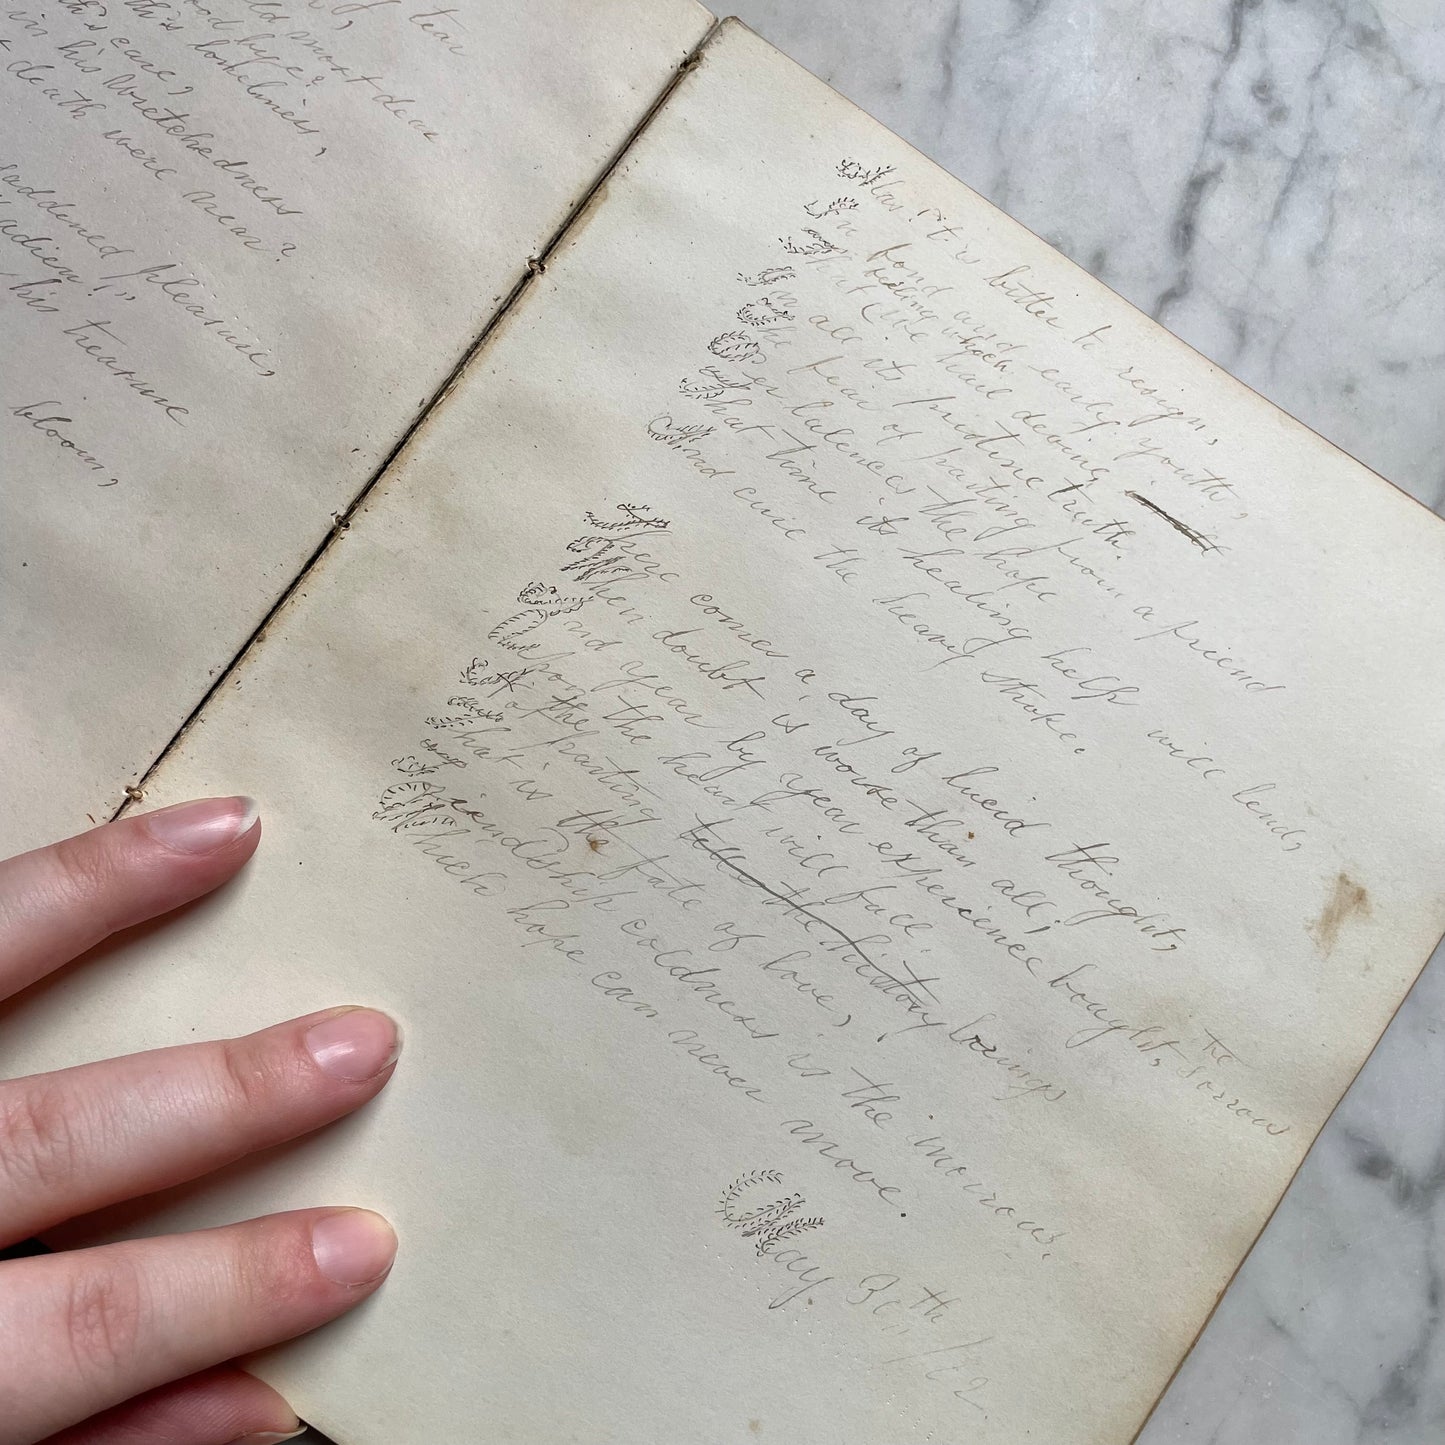 of tear
old most dear
good bye?
this loneliness,
this care,
in his Wretchedness
death were near?
saddened pleasure,
adieu!"
his treasure
bloom,
Alas! it is better to resign,
In fond and early youth,
feeling which
that (like hail dewing
In all its pristine truth.
The fear of parting from a friend
the hope
That time its healing help will lend,
And cure the heavy stroke.
There comes a day of lucid thought,
When doubt is worse than all;
And year by year experience bought,
Upon the heart will fall. The
of the parting tell the history brings sorrow
What is the fate of love,
Friendship coldness is the morrow.
Which hope can never move.
May. 30th /22